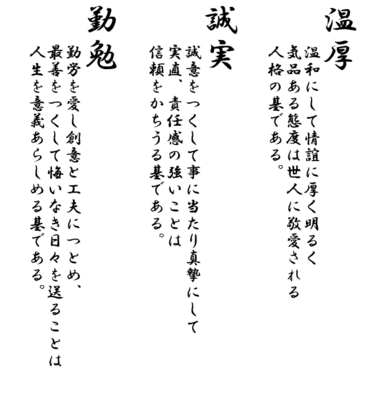 温厚
温和にして情誼に厚く明るく
気品ある態度は世人に敬愛される
人格の基である。
誠実
誠意をつくして事に当たり真摯にして
実直、責任感の強いことは
信頼をかちうる基である。
勤勉
勤労を愛し創意と工夫につとめ、
最善をつくして悔いなき日々を送ることは
人生を意義あらしめる基である。